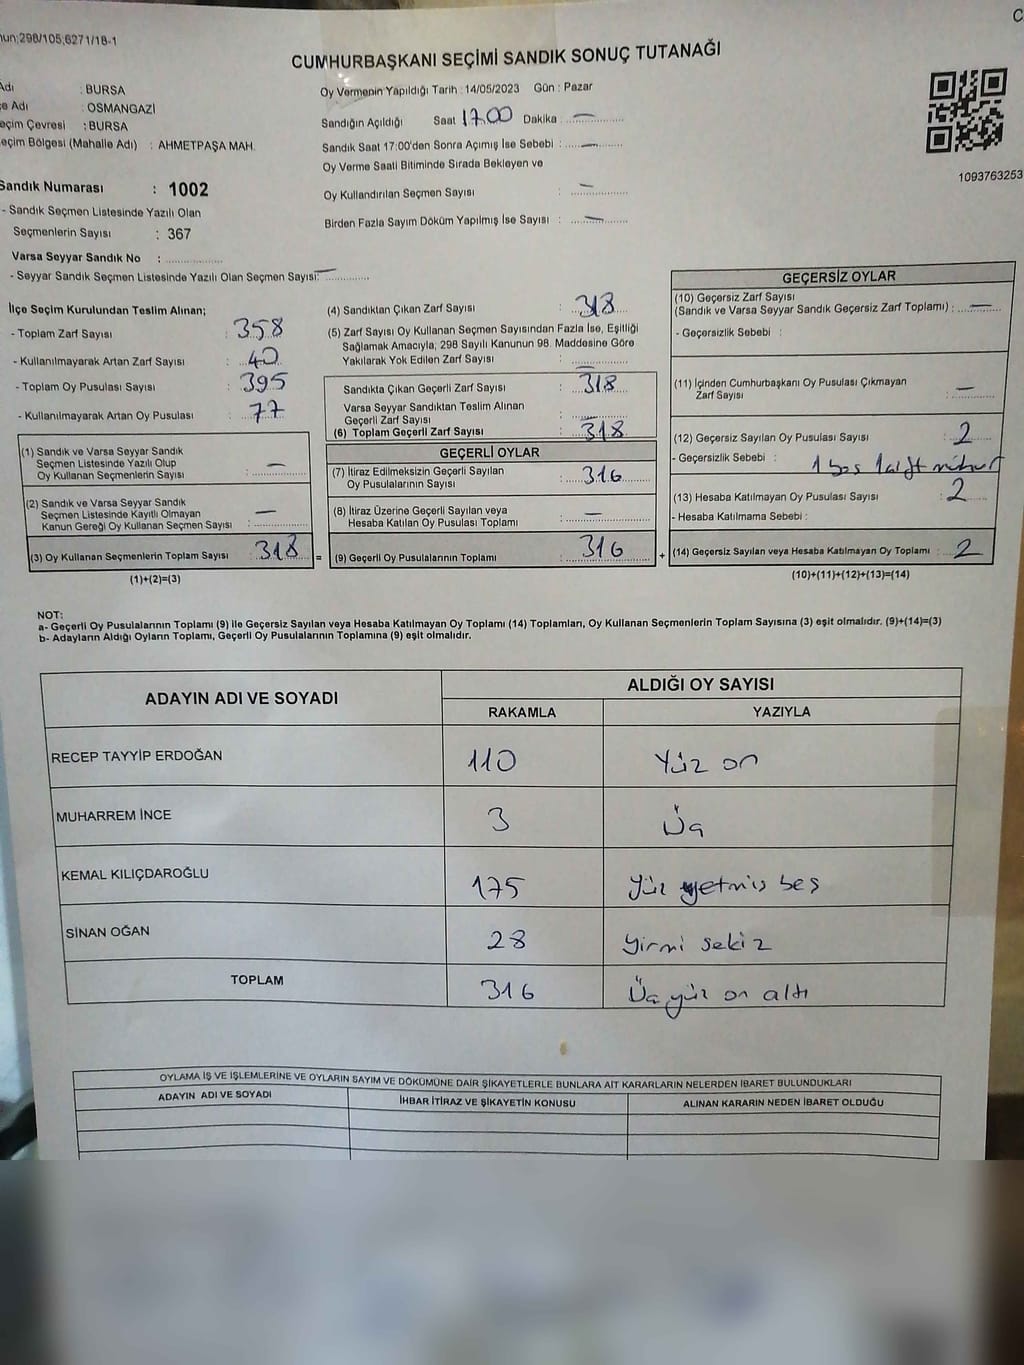 298/105,6271/18-1
C
CUMHURBAŞKANI SEÇİMİ SANDIK SONUÇ TUTANAĞI
: BURSA
Adı : OSMANGAZİ
Seçim Çevresi : BURSA
Seçim Bölgesi (Mahalle Adı) : AHMETPAŞA MAH.
Oy Vermenin Yapıldığı Tarih : 14/05/2023 Gün : Pazar
Sandığın Açıldığı Saat 17.00 Dakika : —
Sandık Saat 17:00'den Sonra Açımış İse Sebebi : —
Oy Verme Saati Bitiminde Sırada Bekleyen ve
Oy Kullandırılan Seçmen Sayısı : —
Birden Fazla Sayım Döküm Yapılmış İse Sayısı : —
1093763253
Sandık Numarası : 1002
- Sandık Seçmen Listesinde Yazılı Olan
Seçmenlerin Sayısı : 367
Varsa Seyyar Sandık No :
- Seyyar Sandık Seçmen Listesinde Yazılı Olan Seçmen Sayısı: —
İlçe Seçim Kurulundan Teslim Alınan;
- Toplam Zarf Sayısı : 358
- Kullanılmayarak Artan Zarf Sayısı : 40
- Toplam Oy Pusulası Sayısı : 395
- Kullanılmayarak Artan Oy Pusulası : 77
(1) Sandık ve Varsa Seyyar Sandık
Seçmen Listesinde Yazılı Olup
Oy Kullanan Seçmenlerin Sayısı : —
(2) Sandık ve Varsa Seyyar Sandık
Seçmen Listesinde Kayıtlı Olmayan
Kanun Gereği Oy Kullanan Seçmen Sayısı : —
(3) Oy Kullanan Seçmenlerin Toplam Sayısı : 318
(1)+(2)=(3)
(4) Sandıktan Çıkan Zarf Sayısı : 318
(5) Zarf Sayısı Oy Kullanan Seçmen Sayısından Fazla İse, Eşitliği
Sağlamak Amacıyla; 298 Sayılı Kanunun 98. Maddesine Göre
Yakılarak Yok Edilen Zarf Sayısı : —
Sandıkta Çıkan Geçerli Zarf Sayısı : 318
Varsa Seyyar Sandıktan Teslim Alınan
Geçerli Zarf Sayısı : —
(6) Toplam Geçerli Zarf Sayısı : 318
GEÇERLİ OYLAR
(7) İtiraz Edilmeksizin Geçerli Sayılan
Oy Pusulalarının Sayısı : 316
(8) İtiraz Üzerine Geçerli Sayılan veya
Hesaba Katılan Oy Pusulası Toplamı : —
= (9) Geçerli Oy Pusulalarının Toplamı : 316
GEÇERSİZ OYLAR
(10) Geçersiz Zarf Sayısı
(Sandık ve Varsa Seyyar Sandık Geçersiz Zarf Toplamı) : —
- Geçersizlik Sebebi :
(11) İçinden Cumhurbaşkanı Oy Pusulası Çıkmayan
Zarf Sayısı : —
(12) Geçersiz Sayılan Oy Pusulası Sayısı : 2
- Geçersizlik Sebebi : 1 boş 1 çift mühür
(13) Hesaba Katılmayan Oy Pusulası Sayısı : 2
- Hesaba Katılmama Sebebi :
+ (14) Geçersiz Sayılan veya Hesaba Katılmayan Oy Toplamı : 2
(10)+(11)+(12)+(13)=(14)
NOT:
a- Geçerli Oy Pusulalarının Toplamı (9) ile Geçersiz Sayılan veya Hesaba Katılmayan Oy Toplamı (14) Toplamları, Oy Kullanan Seçmenlerin Toplam Sayısına (3) eşit olmalıdır. (9)+(14)=(3)
b- Adayların Aldığı Oyların Toplamı, Geçerli Oy Pusulalarının Toplamına (9) eşit olmalıdır.
ADAYIN ADI VE SOYADI
ALDIĞI OY SAYISI
RAKAMLA YAZIYLA
RECEP TAYYİP ERDOĞAN 110 Yüz on
MUHARREM İNCE 3 Üç
KEMAL KILIÇDAROĞLU 175 Yüz yetmiş beş
SİNAN OĞAN 28 Yirmi sekiz
TOPLAM 316 Üç yüz on altı
OYLAMA İŞ VE İŞLEMLERİNE VE OYLARIN SAYIM VE DÖKÜMÜNE DAİR ŞİKAYETLERLE BUNLARA AİT KARARLARIN NELERDEN İBARET BULUNDUKLARI
ADAYIN ADI VE SOYADI İHBAR İTİRAZ VE ŞİKAYETİN KONUSU ALINAN KARARIN NEDEN İBARET OLDUĞU